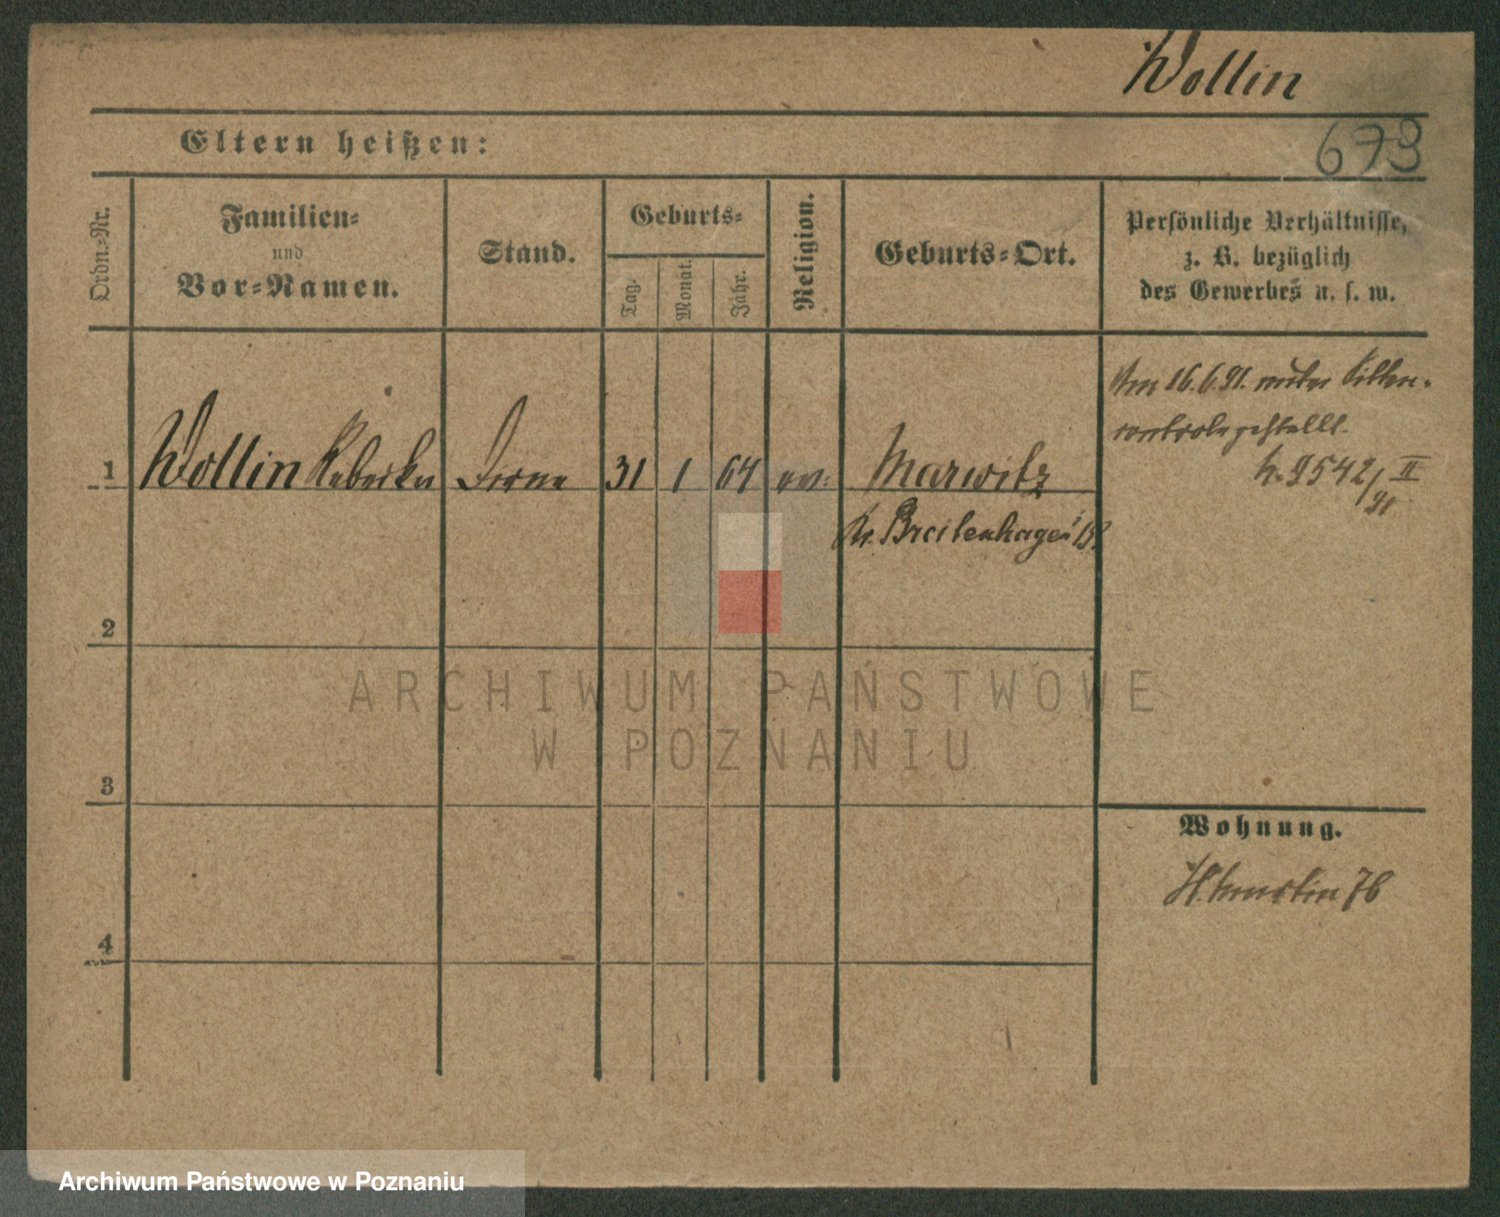 Wollin
673
Eltern heißen:
Ordn.-Nr.
Familien-
und
Vor-Namen.
Stand.
Geburts-
Tag.
Monat.
Jahr.
Religion.
Geburts-Ort.
Persönliche Verhältnisse,
z. B. bezüglich
des Gewerbes u. s. w.
Am 16.6.91. unter Sitten-
controle gestellt.
9542/II
91
1 Wollin 31 1 64 ev: Marwitz
Kr. Breitenhagen
2
3
4
Wohnung.
76
ARCHIWUM PAŃSTWOWE
W POZNANIU
Archiwum Państwowe w Poznaniu